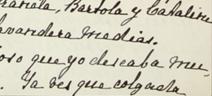 Bartola y Catalina
lavandera medias.
oso que yo deseaba mu,
. Ya ves que colgada